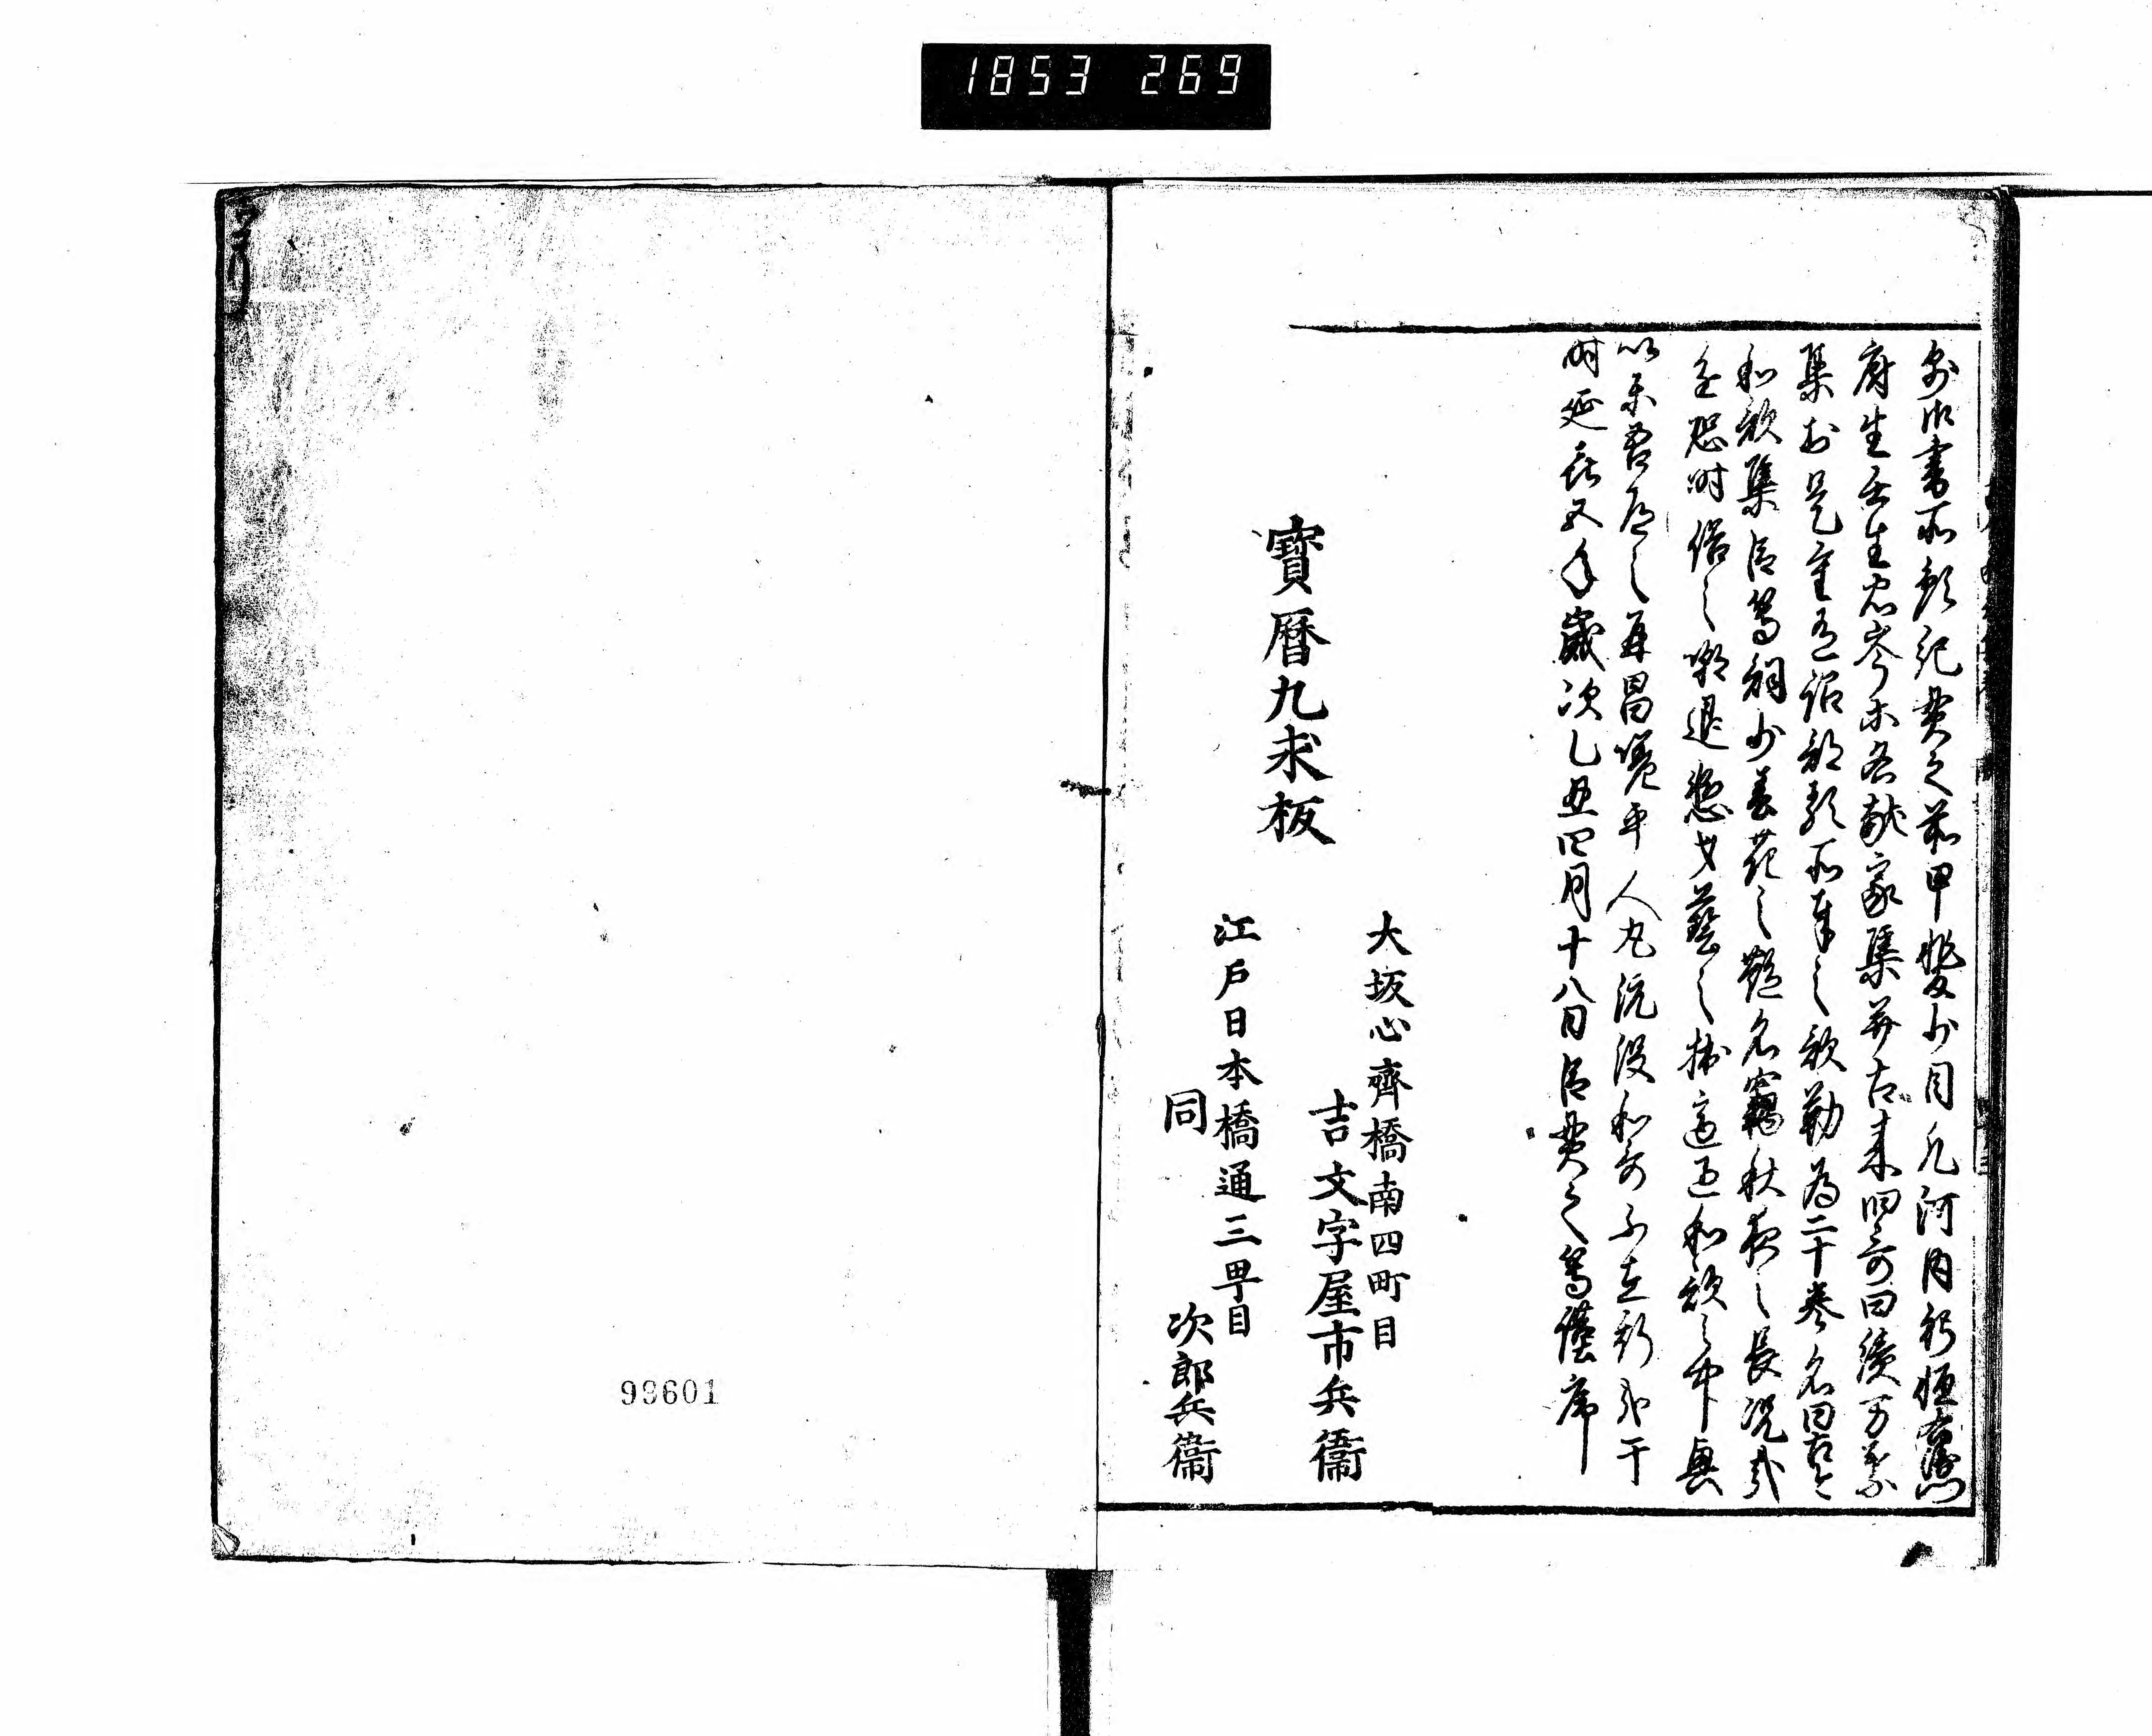 1853 269
則御書所預紀貫之前甲斐少目凡河内躬恒右衛門
府生壬生忠岑等各献家集并古来旧哥曰續万葉
集於是重有詔部類所奉之歌勒為二十巻名曰古今
和歌集臣等詞少春花之艶名竊秋夜之長況乎
進恐時俗之嘲退慙才藝之拙適遇和歌之中興
以楽吾道之再昌嗟乎人丸既没和哥不在斯哉于
時延喜五年歳次乙丑四月十八日臣貫之等謹序
大坂心齊橋南四町目
吉文字屋市兵衞
寶暦九求板
江戸日本橋通三町目
同 次郎兵衞
99601